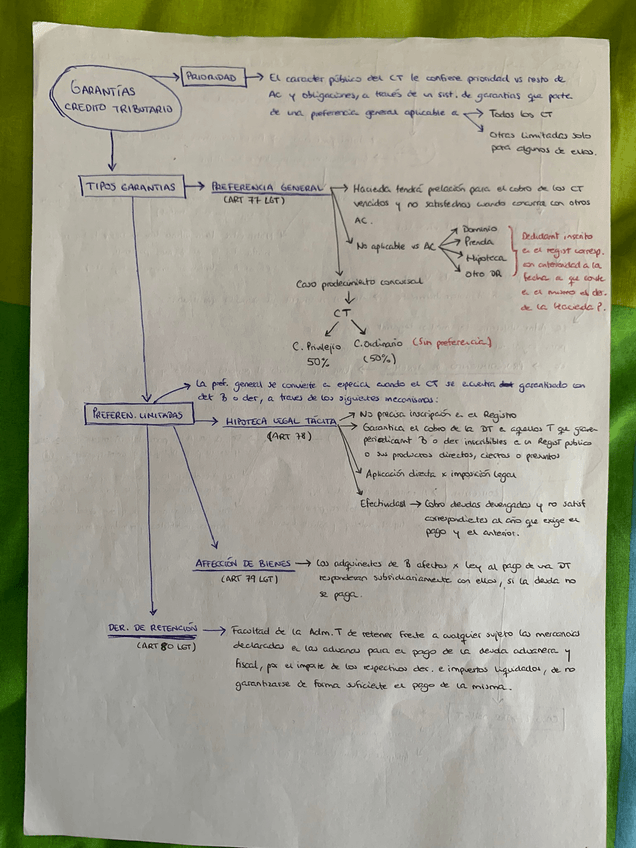 GARANTÍAS
CREDITO TRIBUTARIO
PRIORIDAD
El caracter público del CT le confiere prioridad vs resto de
AC y obligaciones, a través de un sist. de garantías que parte
de una preferencia general aplicable a
Todos los CT
Otras limitadas solo
para algunos de ellos.
TIPOS GARANTIAS
PREFERENCIA GENERAL
(ART 77 LGT)
Hacienda tendrá prelación para el cobro de los CT
vencidos y no satisfechos cuando concurra con otros
AC.
No aplicable vs AC
Dominio
Prenda
Hipoteca
Otro DR
inscrito
en el regist corresp.
con anterioridad a la
fecha a que conste
en el mismo el der.
de la Hacienda P.
Caso procedimiento concursal
CT
C. Privilegio
50%
C. Ordinario (Sin preferencia)
(50%)
La pref. general se convierte en especial cuando el CT se encuentra garantizado con
det B o der, a través de los siguientes mecanismos:
PREFEREN. LIMITADAS
HIPOTECA LEGAL TÁCITA
(ART 78)
No precisa inscripción en el Registro
Garantiza el cobro de la DT en aquellos T que graven
periodicamt B o der inscribibles en un Regist publico
o sus productos directos, ciertos o presuntos
Aplicación directa x imposición legal
Efectividad → Cobro deudas devengadas y no satisf
correspondientes al año que exige el
pago y el anterior.
AFECCIÓN DE BIENES
(ART 79 LGT)
Los adquirentes de B afectos x ley al pago de una DT
responderán subsidiariamente con ellos, si la deuda no
se paga.
DER. DE RETENCIÓN
(ART 80 LGT)
Facultad de la Adm. T de retener frente a cualquier sujeto las mercancías
declaradas en las aduanas para el pago de la deuda aduanera y
fiscal, por el importe de los respectivos der. e impuestos liquidados, de no
garantizarse de forma suficiente el pago de la misma.